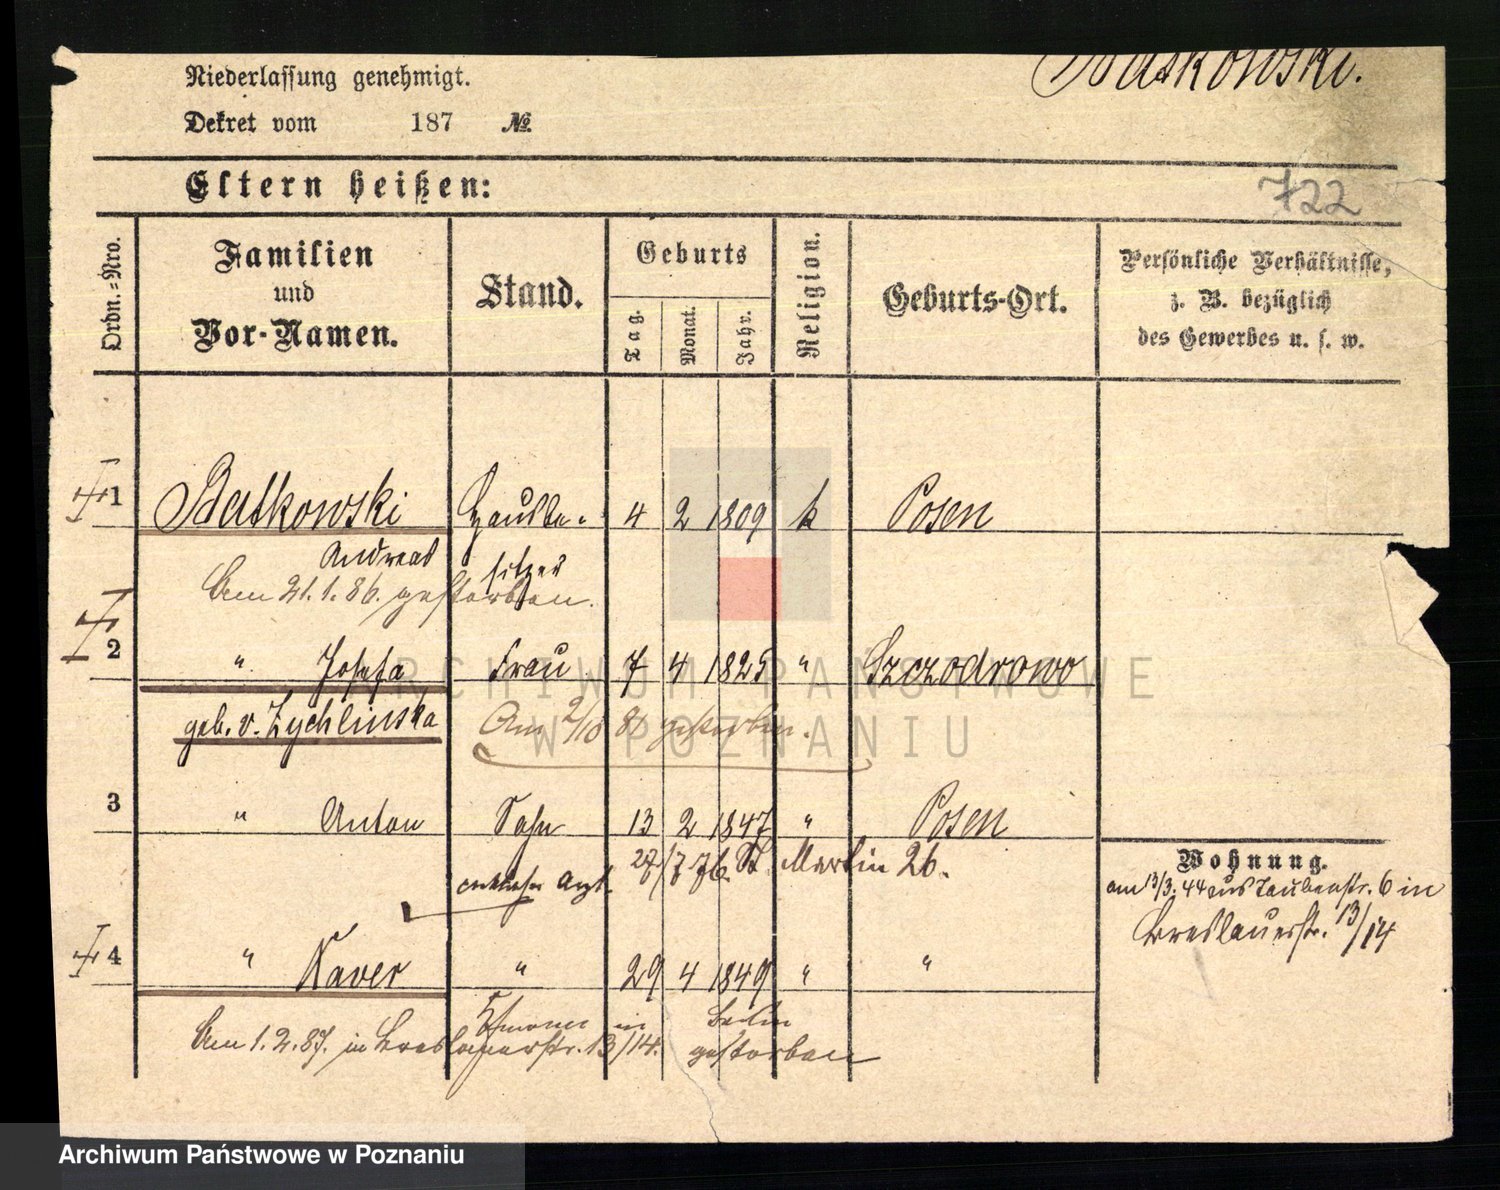 Niederlassung genehmigt.
Batkowski.
Dekret vom 187 №
Eltern heißen:
722
Ordn.=Nro.
Familien und Vor-Namen.
Stand.
Geburts
Tag.
Monat.
Jahr.
Religion.
Geburts-Ort.
Persönliche Verhältnisse, z. B. bezüglich des Gewerbes u. s. w.
1 Batkowski Hausbe- 4 2 1809 k Posen
Andreas sitzer
Am 21.1.86. gestorben.
2 " Josefa Frau 7 4 1825 " Szczodrowo
geb. v. Zychlinska Am 2/10 81 gestorben.
3 " Anton Sohn 13 2 1847 " Posen
Arzt. 27/7 76. St. Martin 26.
Wohnung.
am 13/3. 44 aus Taubenstr. 6 in
Breslauerstr. 13/14
4 " Xaver " 29 4 1849 " "
in Berlin
Am 1.2.87. in Breslauerstr. 13/14. gestorben
ARCHIWUM PAŃSTWOWE
W POZNANIU
Archiwum Państwowe w Poznaniu